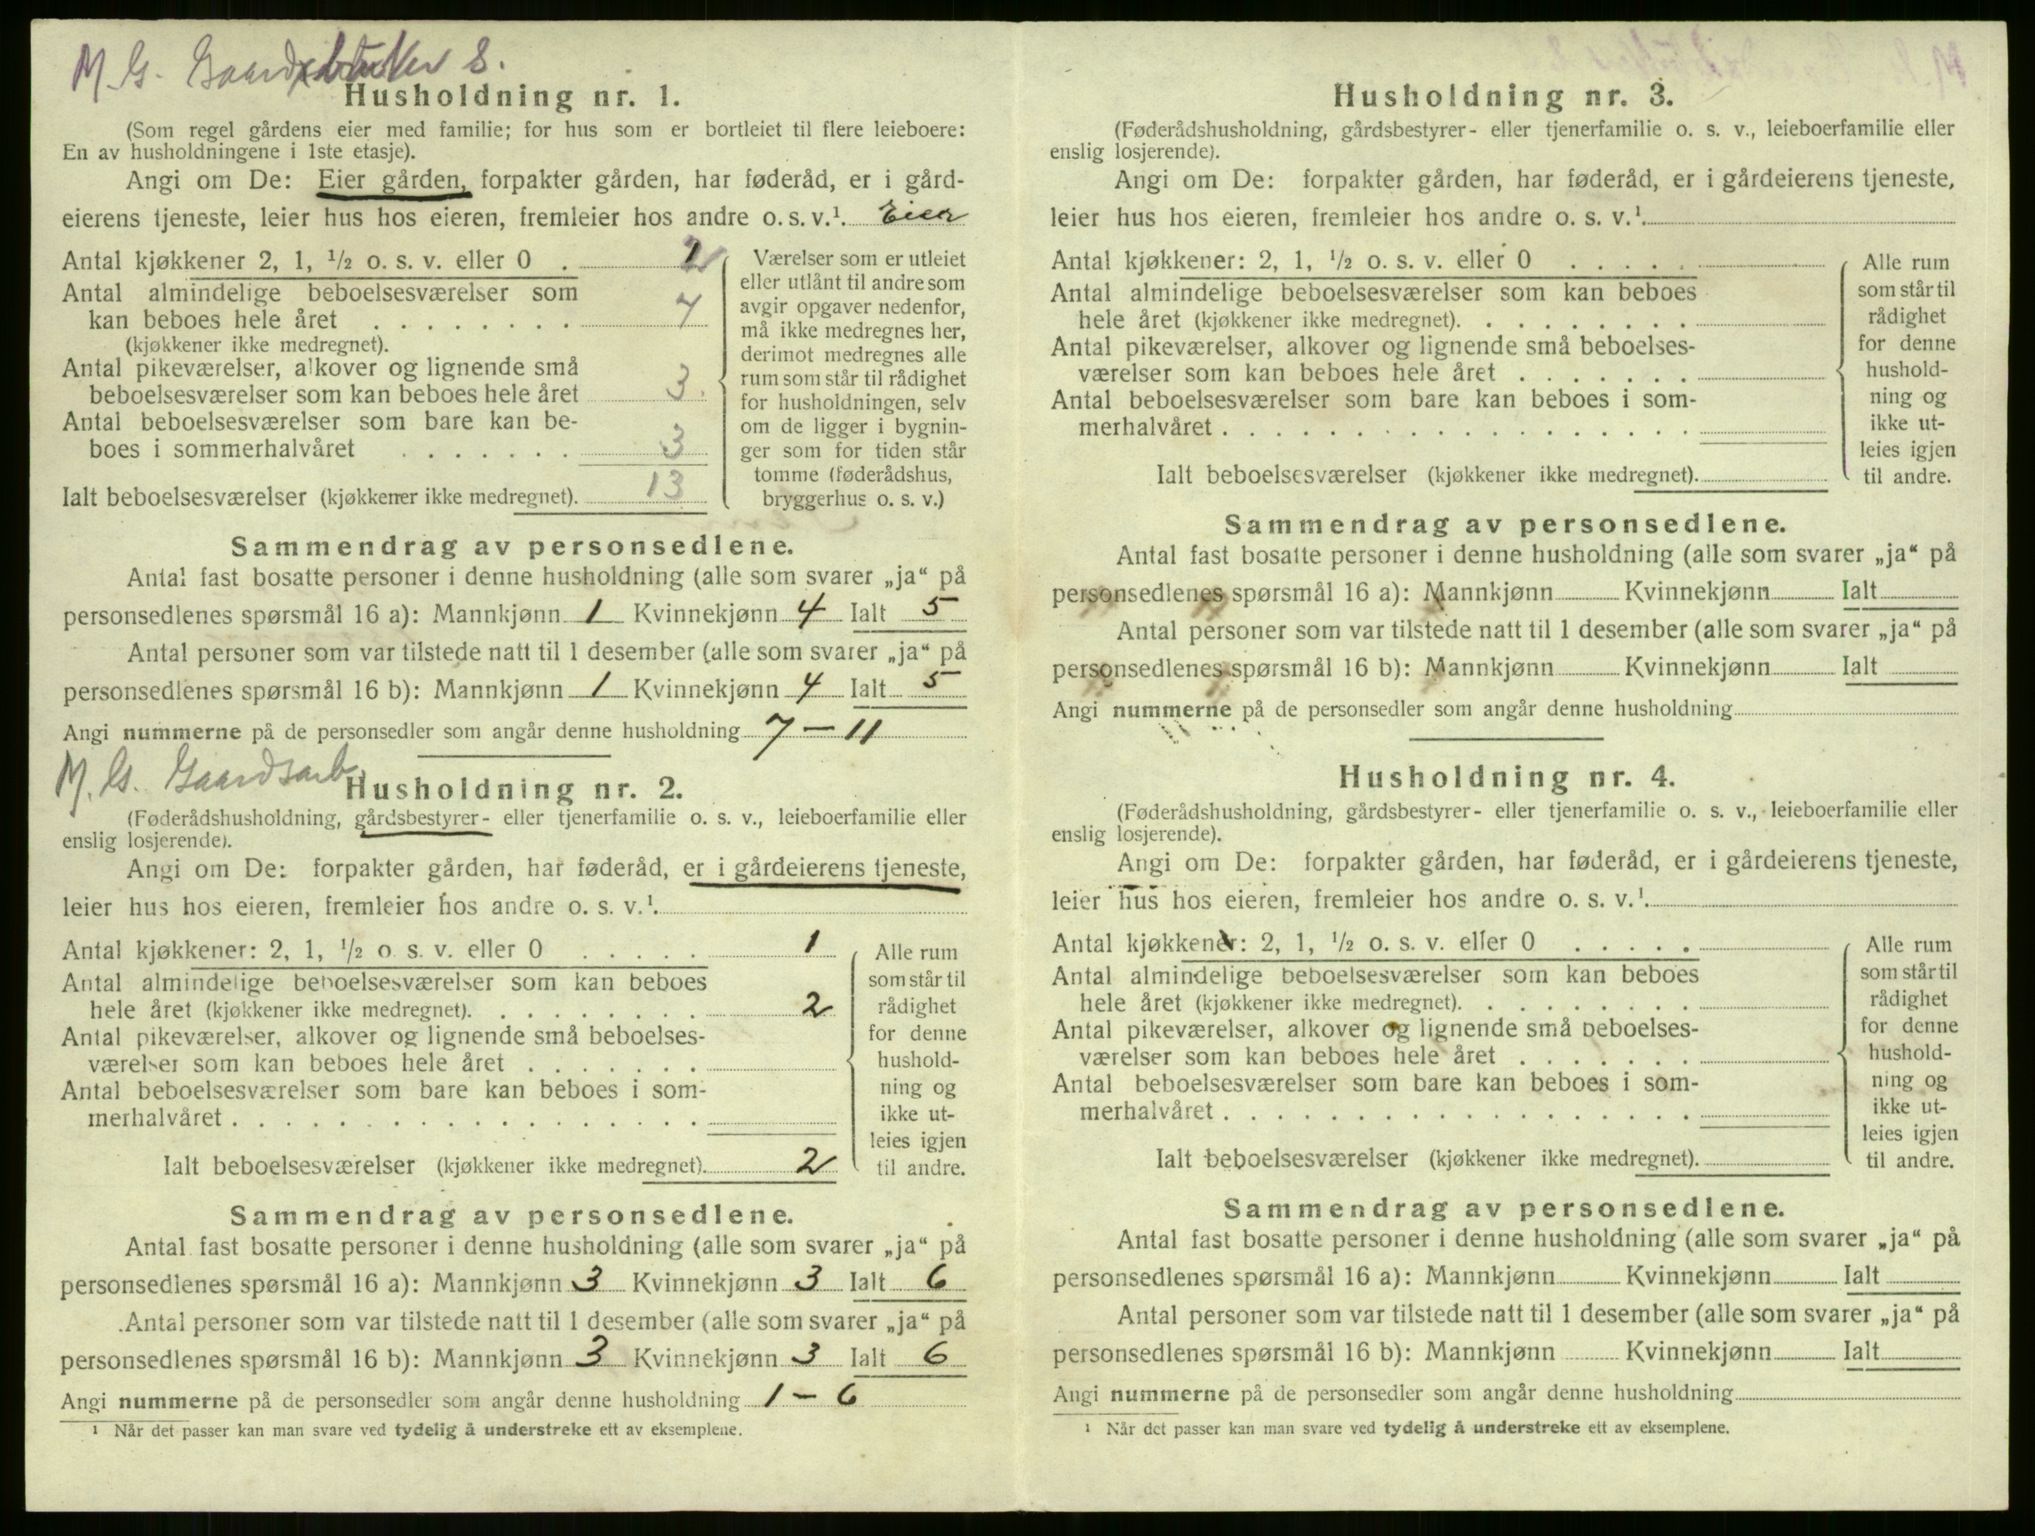 M. G. Gaardbruker S.
Husholdning nr. 1.
(Som regel gårdens eier med familie; for hus som er bortleiet til flere leieboere:
En av husholdningene i 1ste etasje).
Angi om De: Eier gården, forpakter gården, har føderåd, er i gård-
eierens tjeneste, leier hus hos eieren, fremleier hos andre o. s. v.¹. Eier
Antal kjøkkener 2, 1, ½ o. s. v. eller 0 .
Antal almindelige beboelsesværelser som
kan beboes hele året . . . . . . . . 7
(kjøkkener ikke medregnet).
Antal pikeværelser, alkover og lignende små
beboelsesværelser som kan beboes hele året 3.
Antal beboelsesværelser som bare kan be-
boes i sommerhalvåret . . . . . . . 3
Ialt beboelsesværelser (kjøkkener ikke medregnet). 13
Værelser som er utleiet
eller utlånt til andre som
avgir opgaver nedenfor,
må ikke medregnes her,
derimot medregnes alle
rum som står til rådighet
for husholdningen, selv
om de ligger i bygnin-
ger som for tiden står
tomme (føderådshus,
bryggerhus o. s. v.)
Sammendrag av personsedlene.
Antal fast bosatte personer i denne husholdning (alle som svarer „ja“ på
personsedlenes spørsmål 16 a): Mannkjønn 1 Kvinnekjønn 4 Ialt 5
Antal personer som var tilstede natt til 1 desember (alle som svarer „ja“ på
personsedlenes spørsmål 16 b): Mannkjønn 1 Kvinnekjønn 4 Ialt 5
Angi nummerne på de personsedler som angår denne husholdning 7 — 11
M. G. Gaardsarb.
Husholdning nr. 2.
(Føderådshusholdning, gårdsbestyrer- eller tjenerfamilie o. s. v., leieboerfamilie eller
enslig losjerende).
Angi om De: forpakter gården, har føderåd, er i gårdeierens tjeneste,
leier hus hos eieren, fremleier hos andre o. s. v.¹.
Antal kjøkkener: 2, 1, ½ o. s. v. eller 0 . . . . . 1
Antal almindelige beboelsesværelser som kan beboes
hele året (kjøkkener ikke medregnet). . . . . . . . . 2
Antal pikeværelser, alkover og lignende små beboelses-
værelser som kan beboes hele året . . . . . . .
Antal beboelsesværelser som bare kan beboes i som-
merhalvåret . . . . . . . . . . . . . . . . . .
Ialt beboelsesværelser (kjøkkener ikke medregnet). 2
Alle rum
som står til
rådighet
for denne
hushold-
ning og
ikke ut-
leies igjen
til andre.
Sammendrag av personsedlene.
Antal fast bosatte personer i denne husholdning (alle som svarer „ja“ på
personsedlenes spørsmål 16 a): Mannkjønn 3 Kvinnekjønn 3 Ialt 6
Antal personer som var tilstede natt til 1 desember (alle som svarer „ja“ på
personsedlenes spørsmål 16 b): Mannkjønn 3 Kvinnekjønn 3 Ialt 6
Angi nummerne på de personsedler som angår denne husholdning 1 — 6
¹ Når det passer kan man svare ved tydelig å understreke ett av eksemplene.
Husholdning nr. 3.
(Føderådshusholdning, gårdsbestyrer- eller tjenerfamilie o. s. v., leieboerfamilie eller
enslig losjerende).
Angi om De: forpakter gården, har føderåd, er i gårdeierens tjeneste,
leier hus hos eieren, fremleier hos andre o. s. v.¹.
Antal kjøkkener: 2, 1, ½ o. s. v. eller 0 . . . . .
Antal almindelige beboelsesværelser som kan beboes
hele året (kjøkkener ikke medregnet). . . . . . . . .
Antal pikeværelser, alkover og lignende små beboelses-
værelser som kan beboes hele året . . . . . . .
Antal beboelsesværelser som bare kan beboes i som-
merhalvåret . . . . . . . . . . . . . . . . . .
Ialt beboelsesværelser (kjøkkener ikke medregnet).
Alle rum
som står til
rådighet
for denne
hushold-
ning og
ikke ut-
leies igjen
til andre.
Sammendrag av personsedlene.
Antal fast bosatte personer i denne husholdning (alle som svarer „ja“ på
personsedlenes spørsmål 16 a): Mannkjønn Kvinnekjønn Ialt
Antal personer som var tilstede natt til 1 desember (alle som svarer „ja“ på
personsedlenes spørsmål 16 b): Mannkjønn Kvinnekjønn Ialt
Angi nummerne på de personsedler som angår denne husholdning
Husholdning nr. 4.
(Føderådshusholdning, gårdsbestyrer- eller tjenerfamilie o. s. v., leieboerfamilie eller
enslig losjerende).
Angi om De: forpakter gården, har føderåd, er i gårdeierens tjeneste,
leier hus hos eieren, fremleier hos andre o. s. v.¹.
Antal kjøkkener: 2, 1, ½ o. s. v. eller 0 . . . . .
Antal almindelige beboelsesværelser som kan beboes
hele året (kjøkkener ikke medregnet). . . . . . . . .
Antal pikeværelser, alkover og lignende små beboelses-
værelser som kan beboes hele året . . . . . . .
Antal beboelsesværelser som bare kan beboes i som-
merhalvåret . . . . . . . . . . . . . . . . . .
Ialt beboelsesværelser (kjøkkener ikke medregnet).
Alle rum
som står til
rådighet
for denne
hushold-
ning og
ikke ut-
leies igjen
til andre.
Sammendrag av personsedlene.
Antal fast bosatte personer i denne husholdning (alle som svarer „ja“ på
personsedlenes spørsmål 16 a): Mannkjønn Kvinnekjønn Ialt
Antal personer som var tilstede natt til 1 desember (alle som svarer „ja“ på
personsedlenes spørsmål 16 b): Mannkjønn Kvinnekjønn Ialt
Angi nummerne på de personsedler som angår denne husholdning
¹ Når det passer kan man svare ved tydelig å understreke ett av eksemplene.